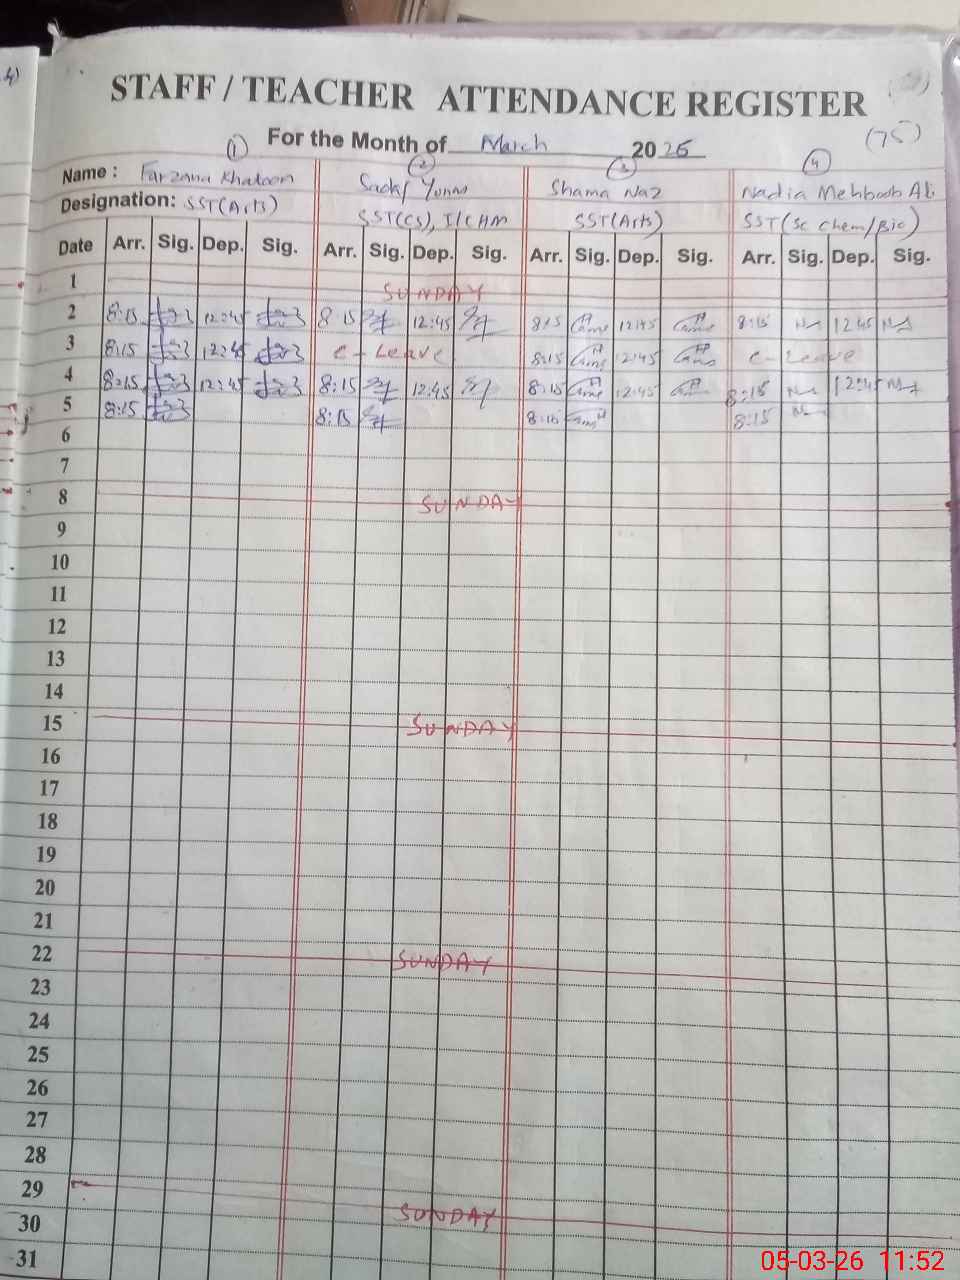 STAFF / TEACHER ATTENDANCE REGISTER
(75)
For the Month of March 2026
① ② ③ ④
Name : Farzana Khatoon Sadaf Younas Shama Naz Nadia Mehboob Ali
Designation: SST(Arts) SST(CS), I/C HM SST(Arts) SST(Sc Chem/Bio)
Date Arr. Sig. Dep. Sig. Arr. Sig. Dep. Sig. Arr. Sig. Dep. Sig. Arr. Sig. Dep. Sig.
1 SUNDAY
2 8:15 12:45 8:15 12:45 8:15 12:45 8:15 12:45
3 8:15 12:45 C-Leave 8:15 12:45 C-Leave
4 8:15 12:45 8:15 12:45 8:15 12:45 8:15 12:45
5 8:15 8:15 8:15 8:15
6
7
8 SUNDAY
9
10
11
12
13
14
15 SUNDAY
16
17
18
19
20
21
22 SUNDAY
23
24
25
26
27
28
29 SUNDAY
30
31
05-03-26 11:52